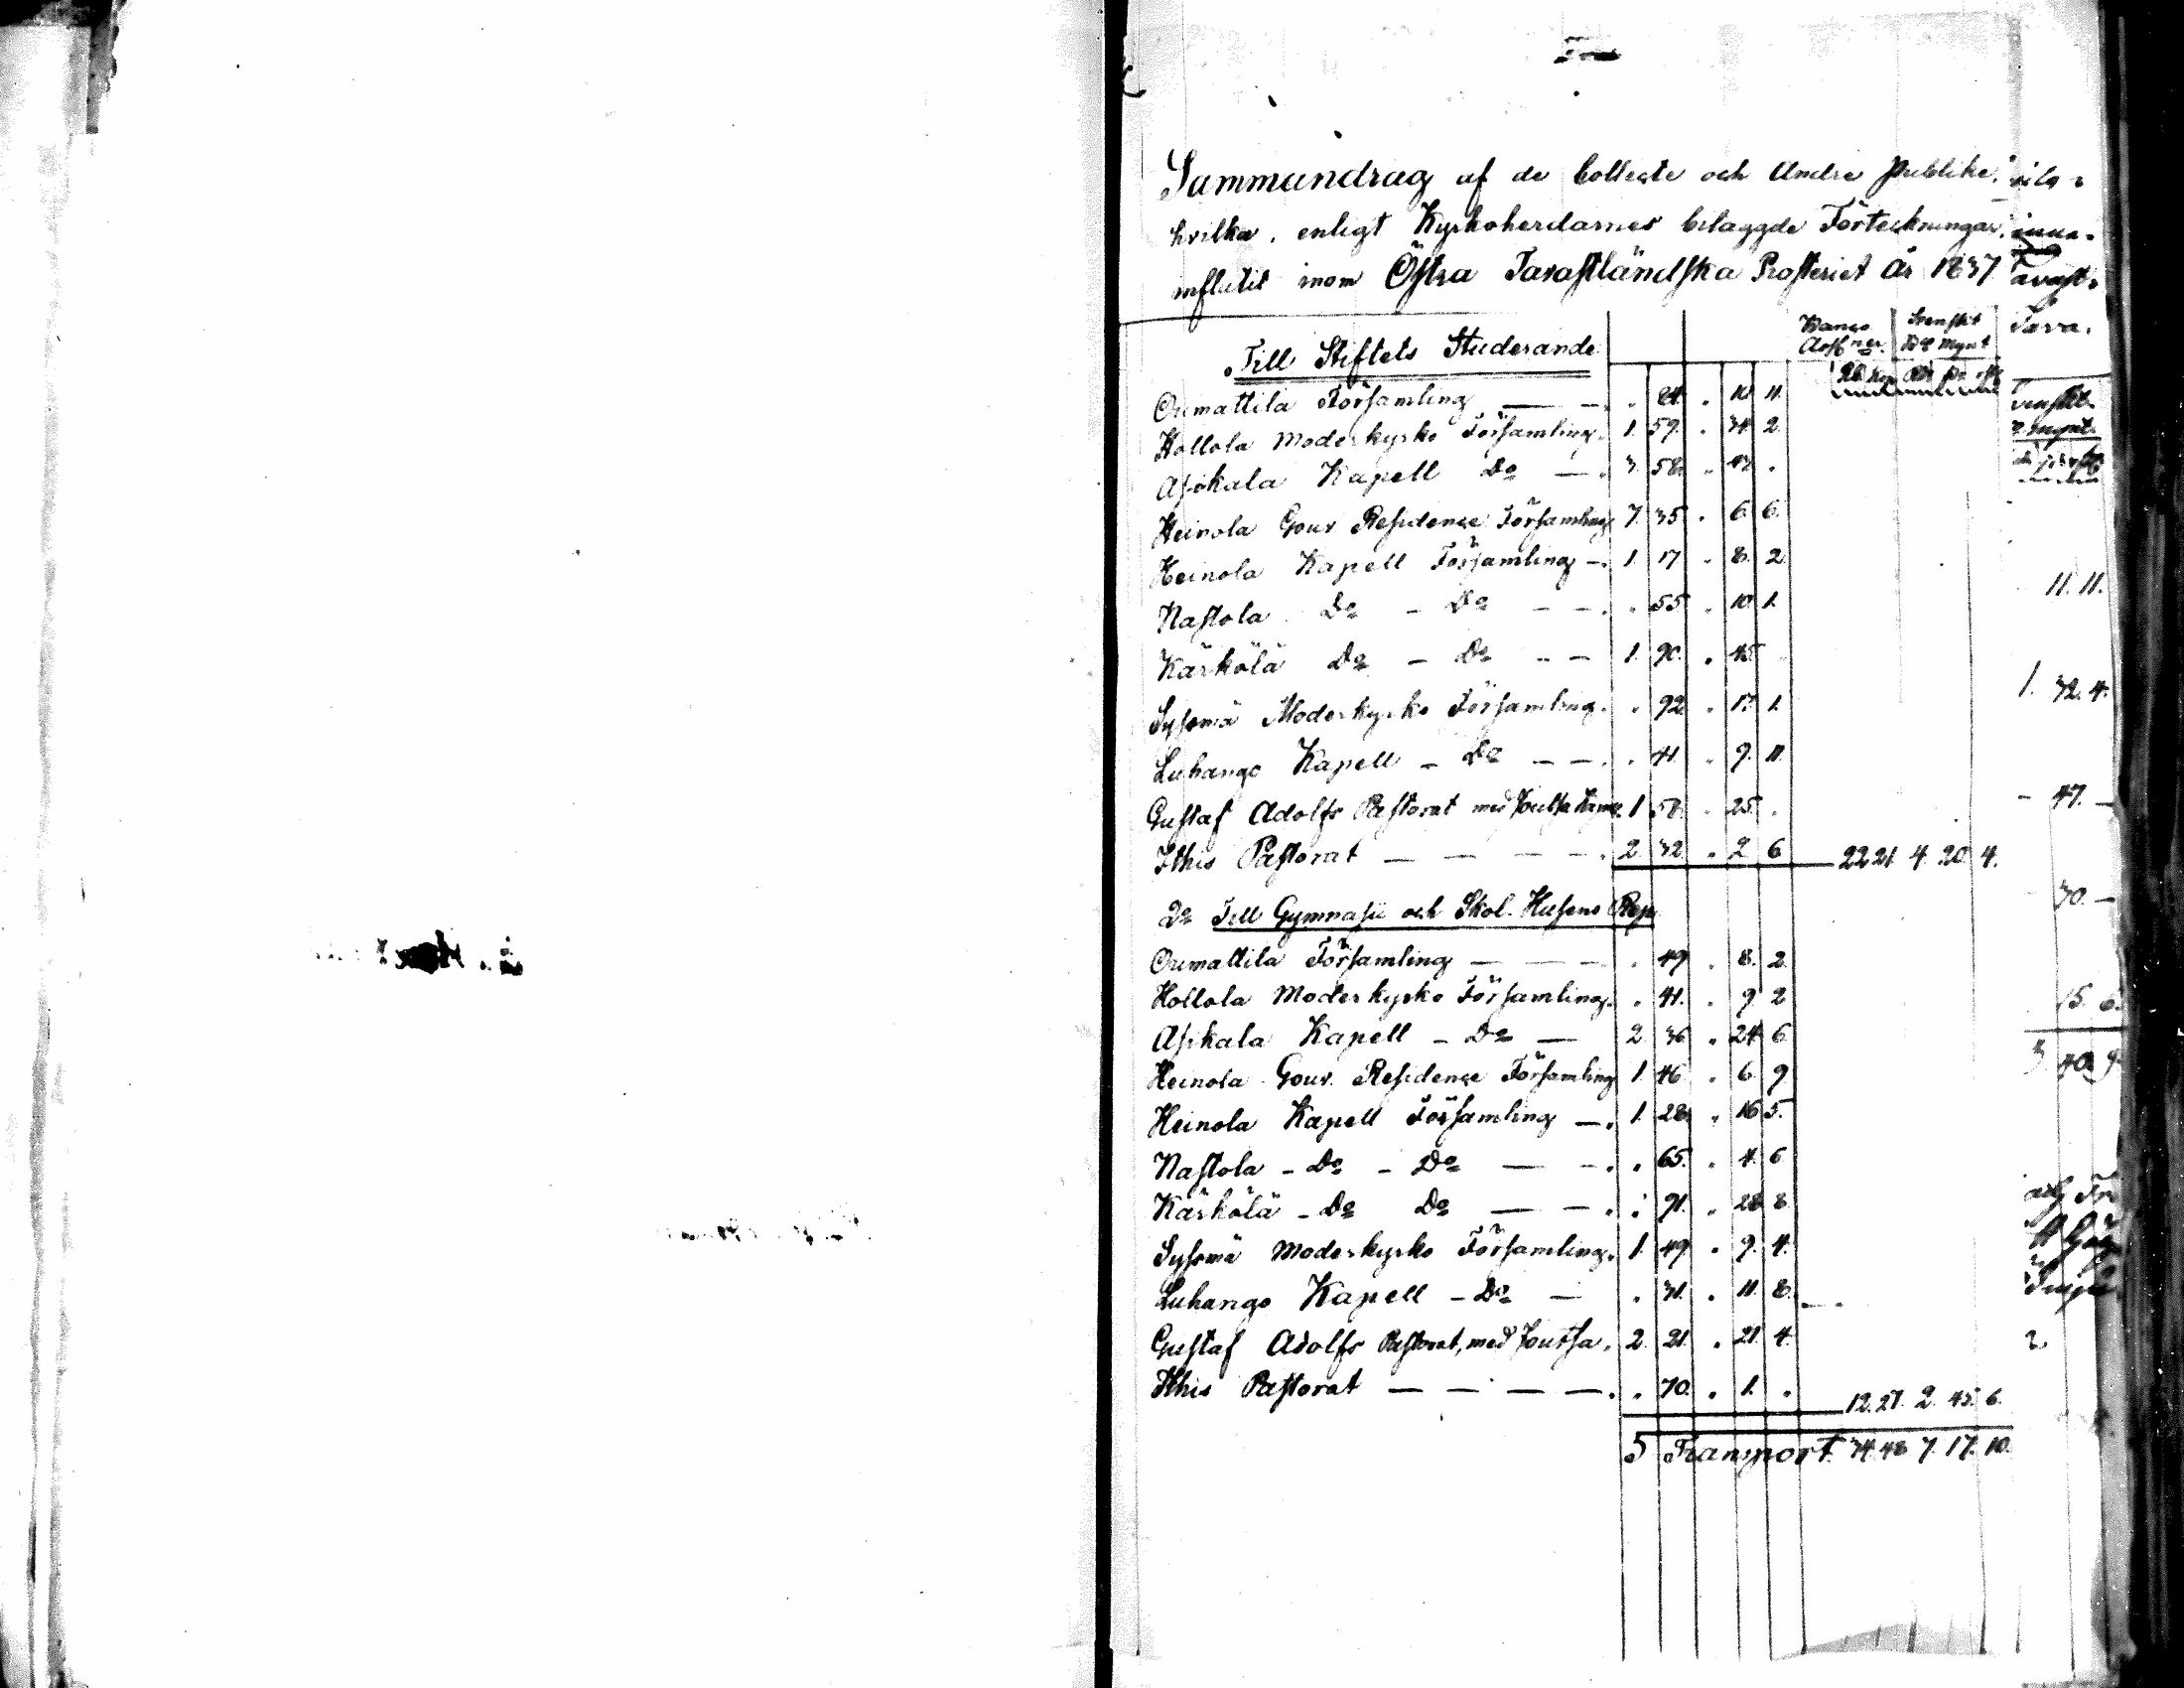 Sammandrag af de Collecte och Andre Publike
hvilka, enligt Kyrkoherdarnes bilaggde Förteckningar,
influtit inom Östra Tavastländska Prosteriet År 1837
Till Stiftets Studerande
Banco Assgner. Svenskt Rdr mynt
Orimattila Församling — . 24. . 10 11.
Hollola Moderkyrko Församling. 1. 59. . 34. 2.
Asikala Kapell Do — . 3. 58. .
Heinola Gouv. Residence Församling 7. 35 . 6. 6.
Heinola Kapell Församling — . 1. 17 . 8. 2
Nastola Do — Do — — . . 55 . 10. 1.
Kärkölä Do — Do — 1. 90. . 45
Sysmä Moderkyrko Församling. . 92. . 17. 1.
Luhango Kapell — Do — — . . 41. . 9. 11.
Gustaf Adolfs Pastorat med Joutsa 1 58. . 25. .
Ithis Pastorat — — — — . 2 32 . 2 6 — 22 21 4. 20 4.
2o Till Gymnasii och Skol. Husens Rep.
Orimattila Församling — — — . 49 . 8. 2.
Hollola Moderkyrko Församling. . 41. . 9 2
Asikala Kapell — Do — 2. 36 . 24 6
Heinola Gouv. Residence Församling 1. 46 . 6 9
Heinola Kapell Församling — . 1. 28. . 16 5.
Nastola — Do — Do — — . . 65. . 4. 6
Kärkölä — Do Do — — . . 91. . 28 8.
Sysmä Moderkyrko Församling. 1. 49 . 9. 4.
Luhango Kapell — Do — . 31. . 11. 8.
Gustaf Adolfs Pastorat, med Joutsa. 2. 21. . 21. 4.
Ithis Pastorat — — — — . . 70. . 1. . — 12. 27. 2. 45. 6.
Transport. 34. 48 7. 17. 10.
11. 11.
1. 32. 4.
— 47. —
70. —
15. 6.